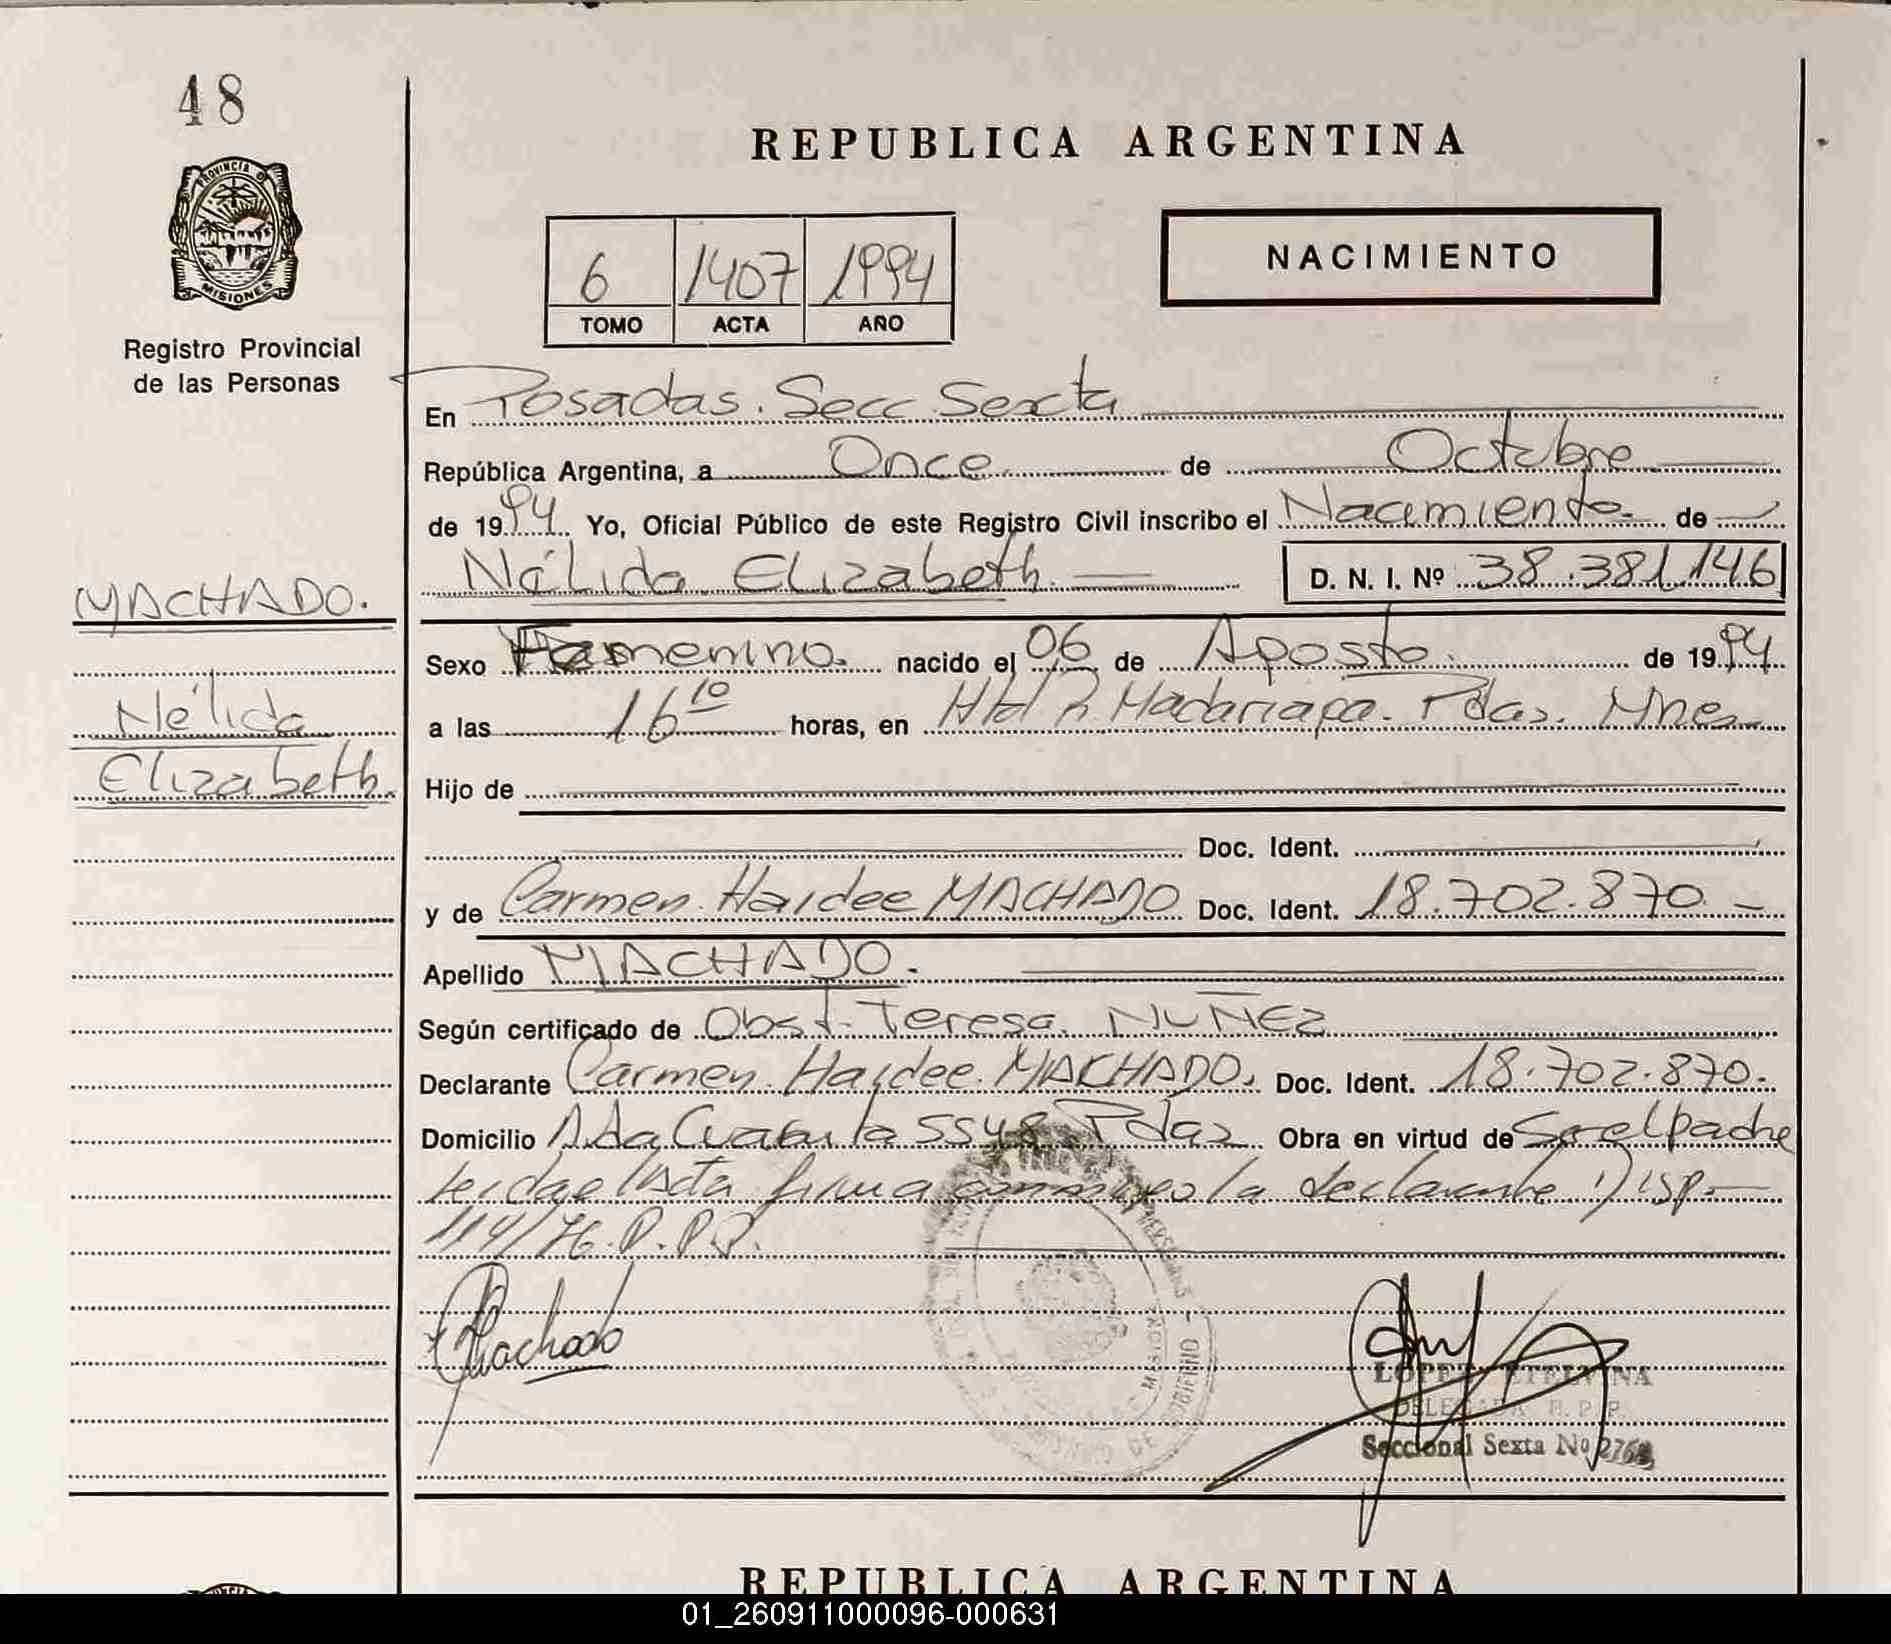 48
REPUBLICA ARGENTINA
PROVINCIA DE
MISIONES
NACIMIENTO
6 1407 1994
TOMO ACTA AÑO
Registro Provincial
de las Personas
En Posadas. Secc. Sexta
República Argentina, a Once de Octubre
de 1994 Yo, Oficial Público de este Registro Civil inscribo el Nacimiento de
Nélida Elizabeth. D. N. I. Nº 38.381.146
MACHADO.
Nélida
Elizabeth.
Sexo Femenino. nacido el 06 de Agosto. de 1994
a las 16 10 horas, en Madariaga. Pdas. Mnes
Hijo de
Doc. Ident.
y de Carmen Haidee MACHADO Doc. Ident. 18.702.870
Apellido MACHADO.
Según certificado de Obst. Teresa NUÑEZ
Declarante Carmen Haidee MACHADO. Doc. Ident. 18.702.870.
Domicilio Pdas Obra en virtud de
leida el Acta firma conmigo la declarante Disp.
114/76.
Machado
LOPEZ ETELVINA
DELEGADA R. P. P.
Seccional Sexta No
REPUBLICA ARGENTINA
01_260911000096-000631